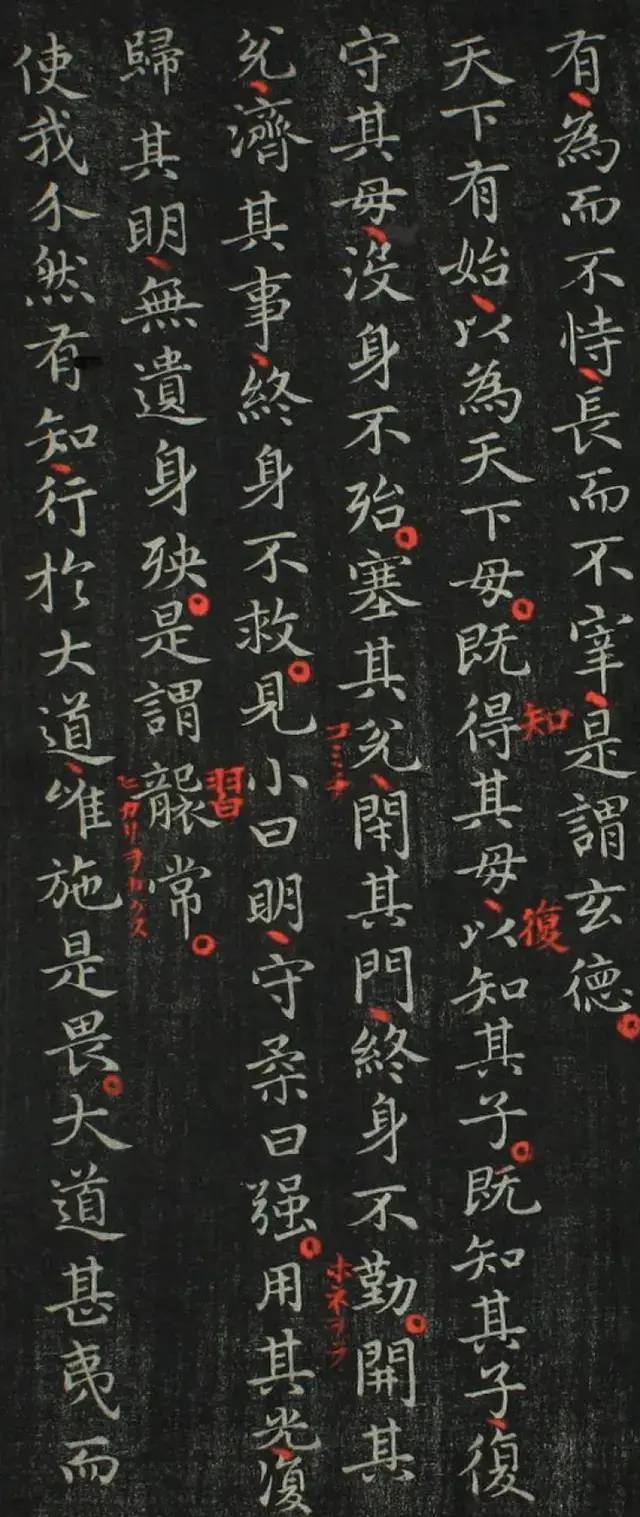 有、為而不恃、長而不宰、是謂玄德。
天下有始、以為天下母。既得其母、以知其子。既知其子、復
知
復
守其母、没身不殆。塞其兊、閇其門、終身不勤。開其
兊、濟其事、終身不救。見小曰明、守柔曰强。用其光、復
コミチ
ホネヲラ
歸其明、無遺身殃。是謂襲常。
習
使我介然有知、行於大道、唯施是畏。大道甚夷而
ヒカリヲカクス